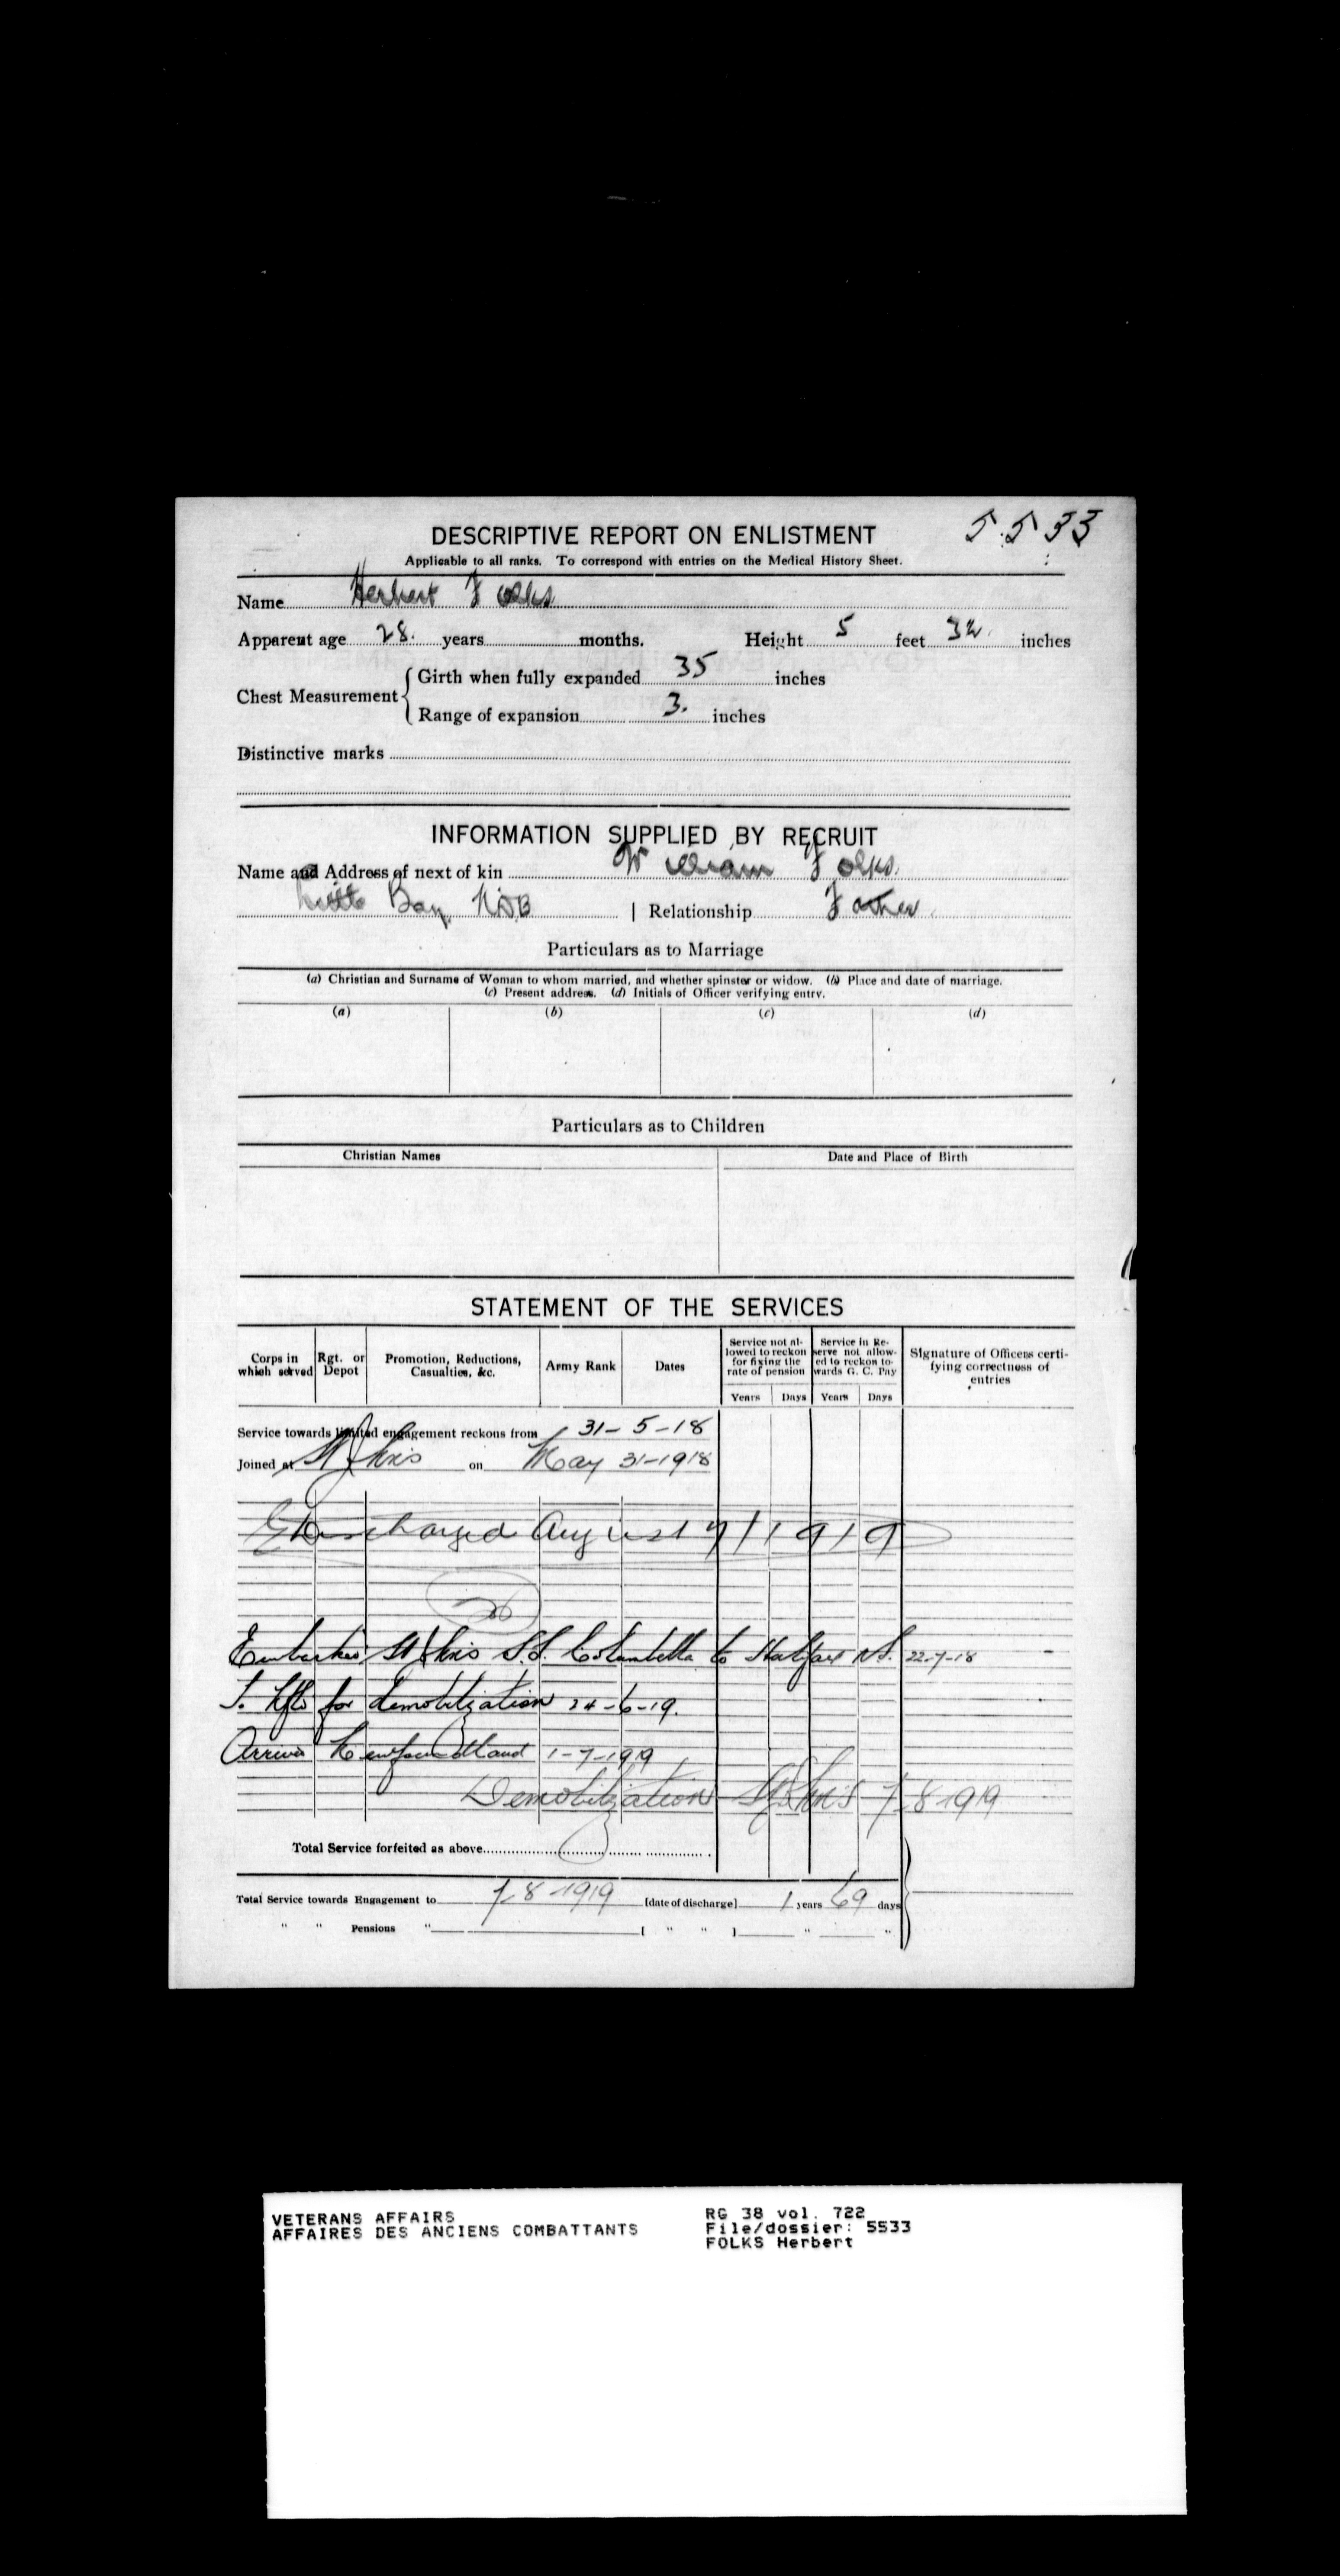 5533
DESCRIPTIVE REPORT ON ENLISTMENT
Applicable to all ranks. To correspond with entries on the Medical History Sheet.
Name Herbert Folks
Apparent age 28. years months. Height 5 feet 3½ inches
Chest Measurement { Girth when fully expanded 35 inches
Range of expansion 3. inches
Distinctive marks
INFORMATION SUPPLIED BY RECRUIT
Name and Address of next of kin William Folks.
Little Bay NDB | Relationship Father
Particulars as to Marriage
(a) Christian and Surname of Woman to whom married, and whether spinster or widow. (b) Place and date of marriage.
(c) Present address. (d) Initials of Officer verifying entry.
(a) (b) (c) (d)
Particulars as to Children
Christian Names Date and Place of Birth
STATEMENT OF THE SERVICES
Corps in which served Rgt. or Depot Promotion, Reductions, Casualties, &c. Army Rank Dates Service not allowed to reckon for fixing the rate of pension Service in Reserve not allowed to reckon towards G. C. Pay Signature of Officers certifying correctness of entries
Years Days Years Days
Service towards limited engagement reckons from 31-5-18
Joined at St Johns on May 31-1918
Discharged August 7/1919
Embarked St Johns S.S. Columbella to Halifax N.S. 22-7-18
for demobilization 24-6-19.
Arrived Newfoundland 1-7-1919
Demobilization St Johns 7-8-1919
Total Service forfeited as above
Total Service towards Engagement to 7-8-1919 [date of discharge] 1 years 69 days
" " Pensions " [ " " ] " "
VETERANS AFFAIRS RG 38 vol. 722
AFFAIRES DES ANCIENS COMBATTANTS File/dossier: 5533
FOLKS Herbert